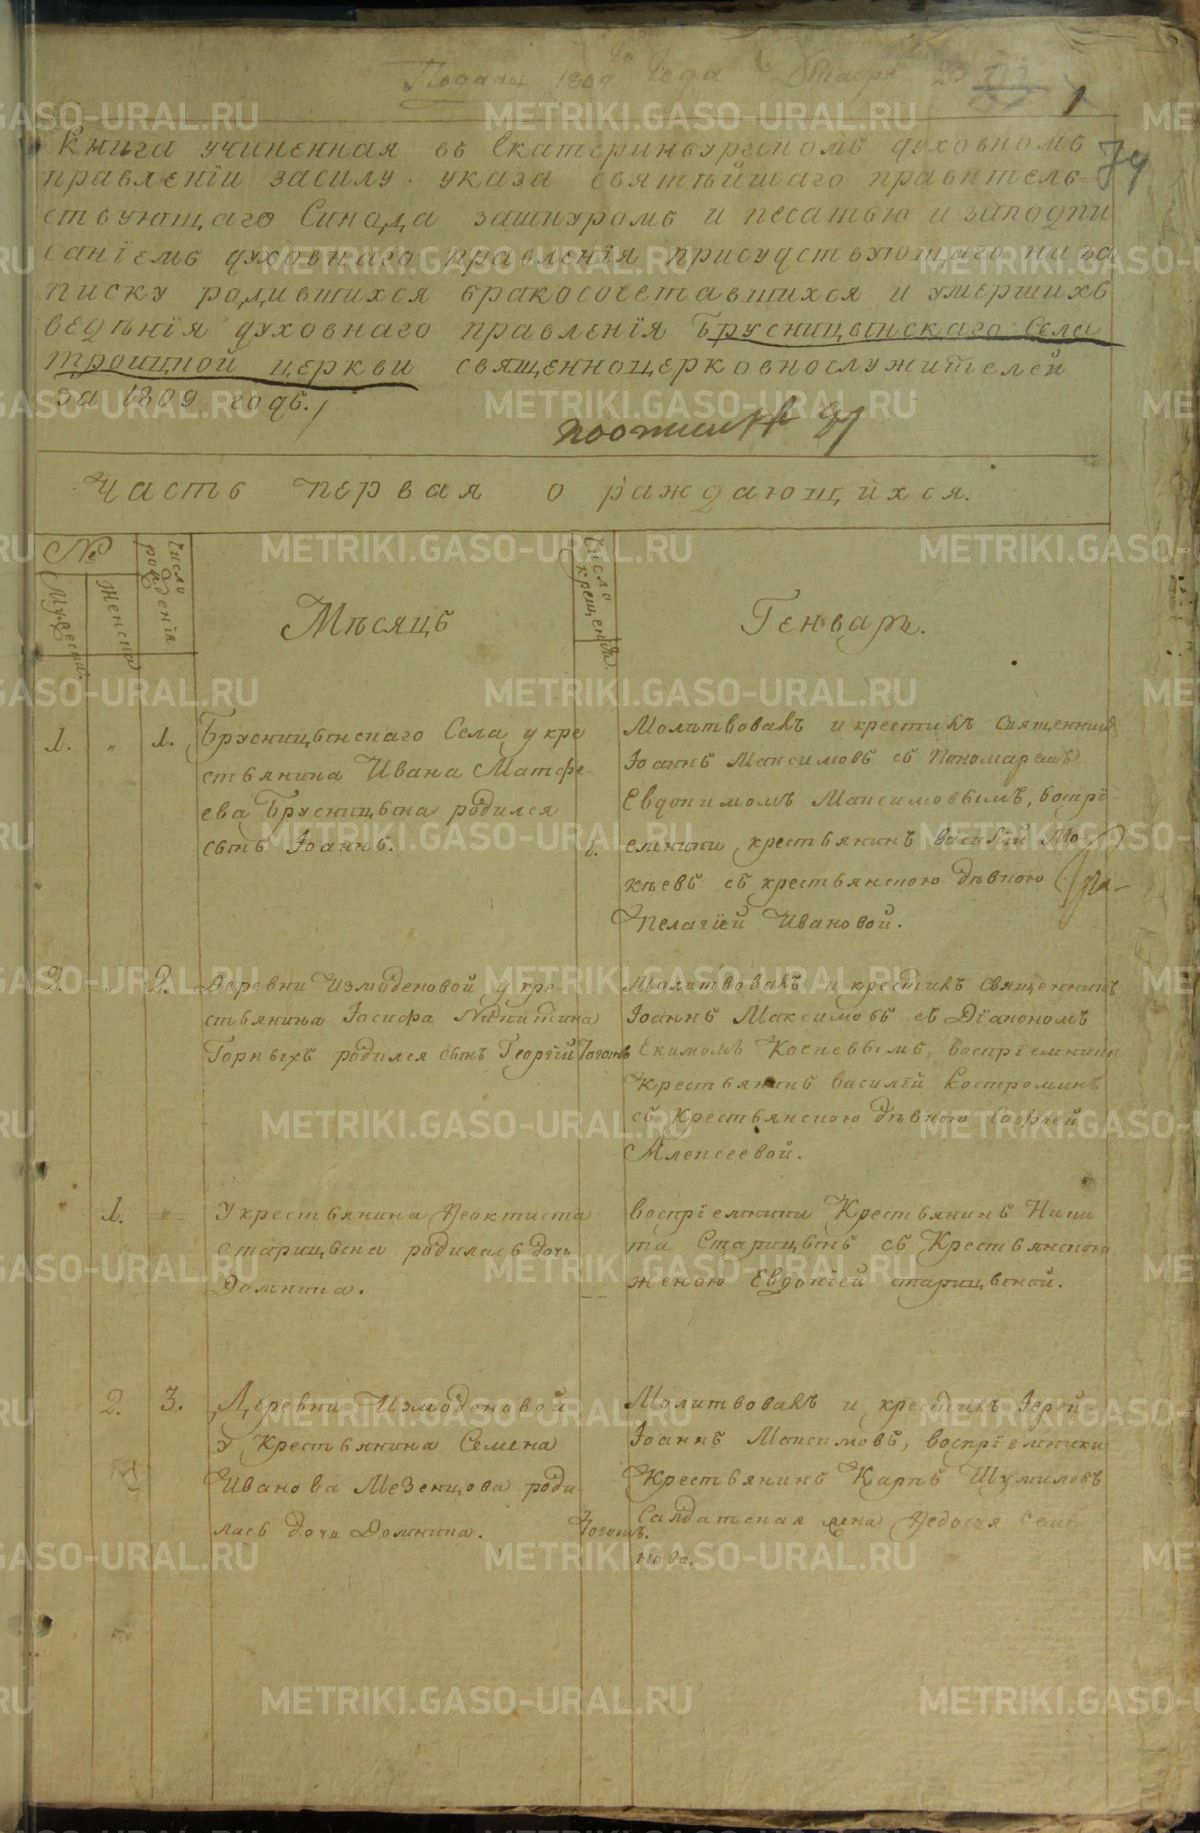 Подана 1809 года
1
74
Книга учиненная въ Екатеринбургскомъ духовномъ
правленіи засилу указа святѣйшаго правитель
ствующаго Синода зашнуромъ и песатью и заподпи
саніемъ духовнаго правленія присудствующаго на за
писку родившихся бракосочетавшихся и умершихъ
ведѣнія духовнаго правленія Брусницынскаго Села
троицкой церкви священноцерковнослужителей
за 1809 годъ.
Часть первая о раждающихся.
№
Мужеска
Женска
Число рожденія
Мѣсяцъ
Число крещенія
Генварь.
1. „ 1.
Брусницынскаго Села у кре
стьянина Ивана Матфе
ева Брусницына родился
сынъ Іоаннъ.
1.
Молитвовалъ и крестилъ священникъ
Іоаннъ Максимовъ съ Пономаремъ
Евдокимомъ Максимовымъ, воспрі
емники, крестьянинъ василій Мо
кѣевъ съ крестьянскою дѣвкою
Пелагіей Ивановой.
2. „ 2.
Деревни Измоденовой у кре
стьянина Іосифа Никитина
Горныхъ родился сынъ Георгій
Тогожъ
Молитвовалъ и крестилъ священникъ
Іоаннъ Максимовъ съ Діакономъ
Екимомъ воспріемники
крестьянинъ василій Костроминъ
съ Крестьянскою дѣвкою Софіей
Алексеевой.
1.
У крестьянина Феоктиста
Старицына родилась дочь
Домнина.
воспріемники Крестьянинъ Ники
та Старицынъ съ Крестьянскою
женою Евдокіей старицыной.
2. 3.
Деревни Измоденовой
У Крестьянина Семена
Иванова Мезенцова роди
лась дочь Домнина.
Тогожъ.
Молитвовалъ и крестилъ Іерей
Іоаннъ Максимовъ, воспріемники
Крестьянинъ Карпъ Шумиловъ
Салдатская жена Федосья Семе
нова.
METRIKI.GASO-URAL.RU